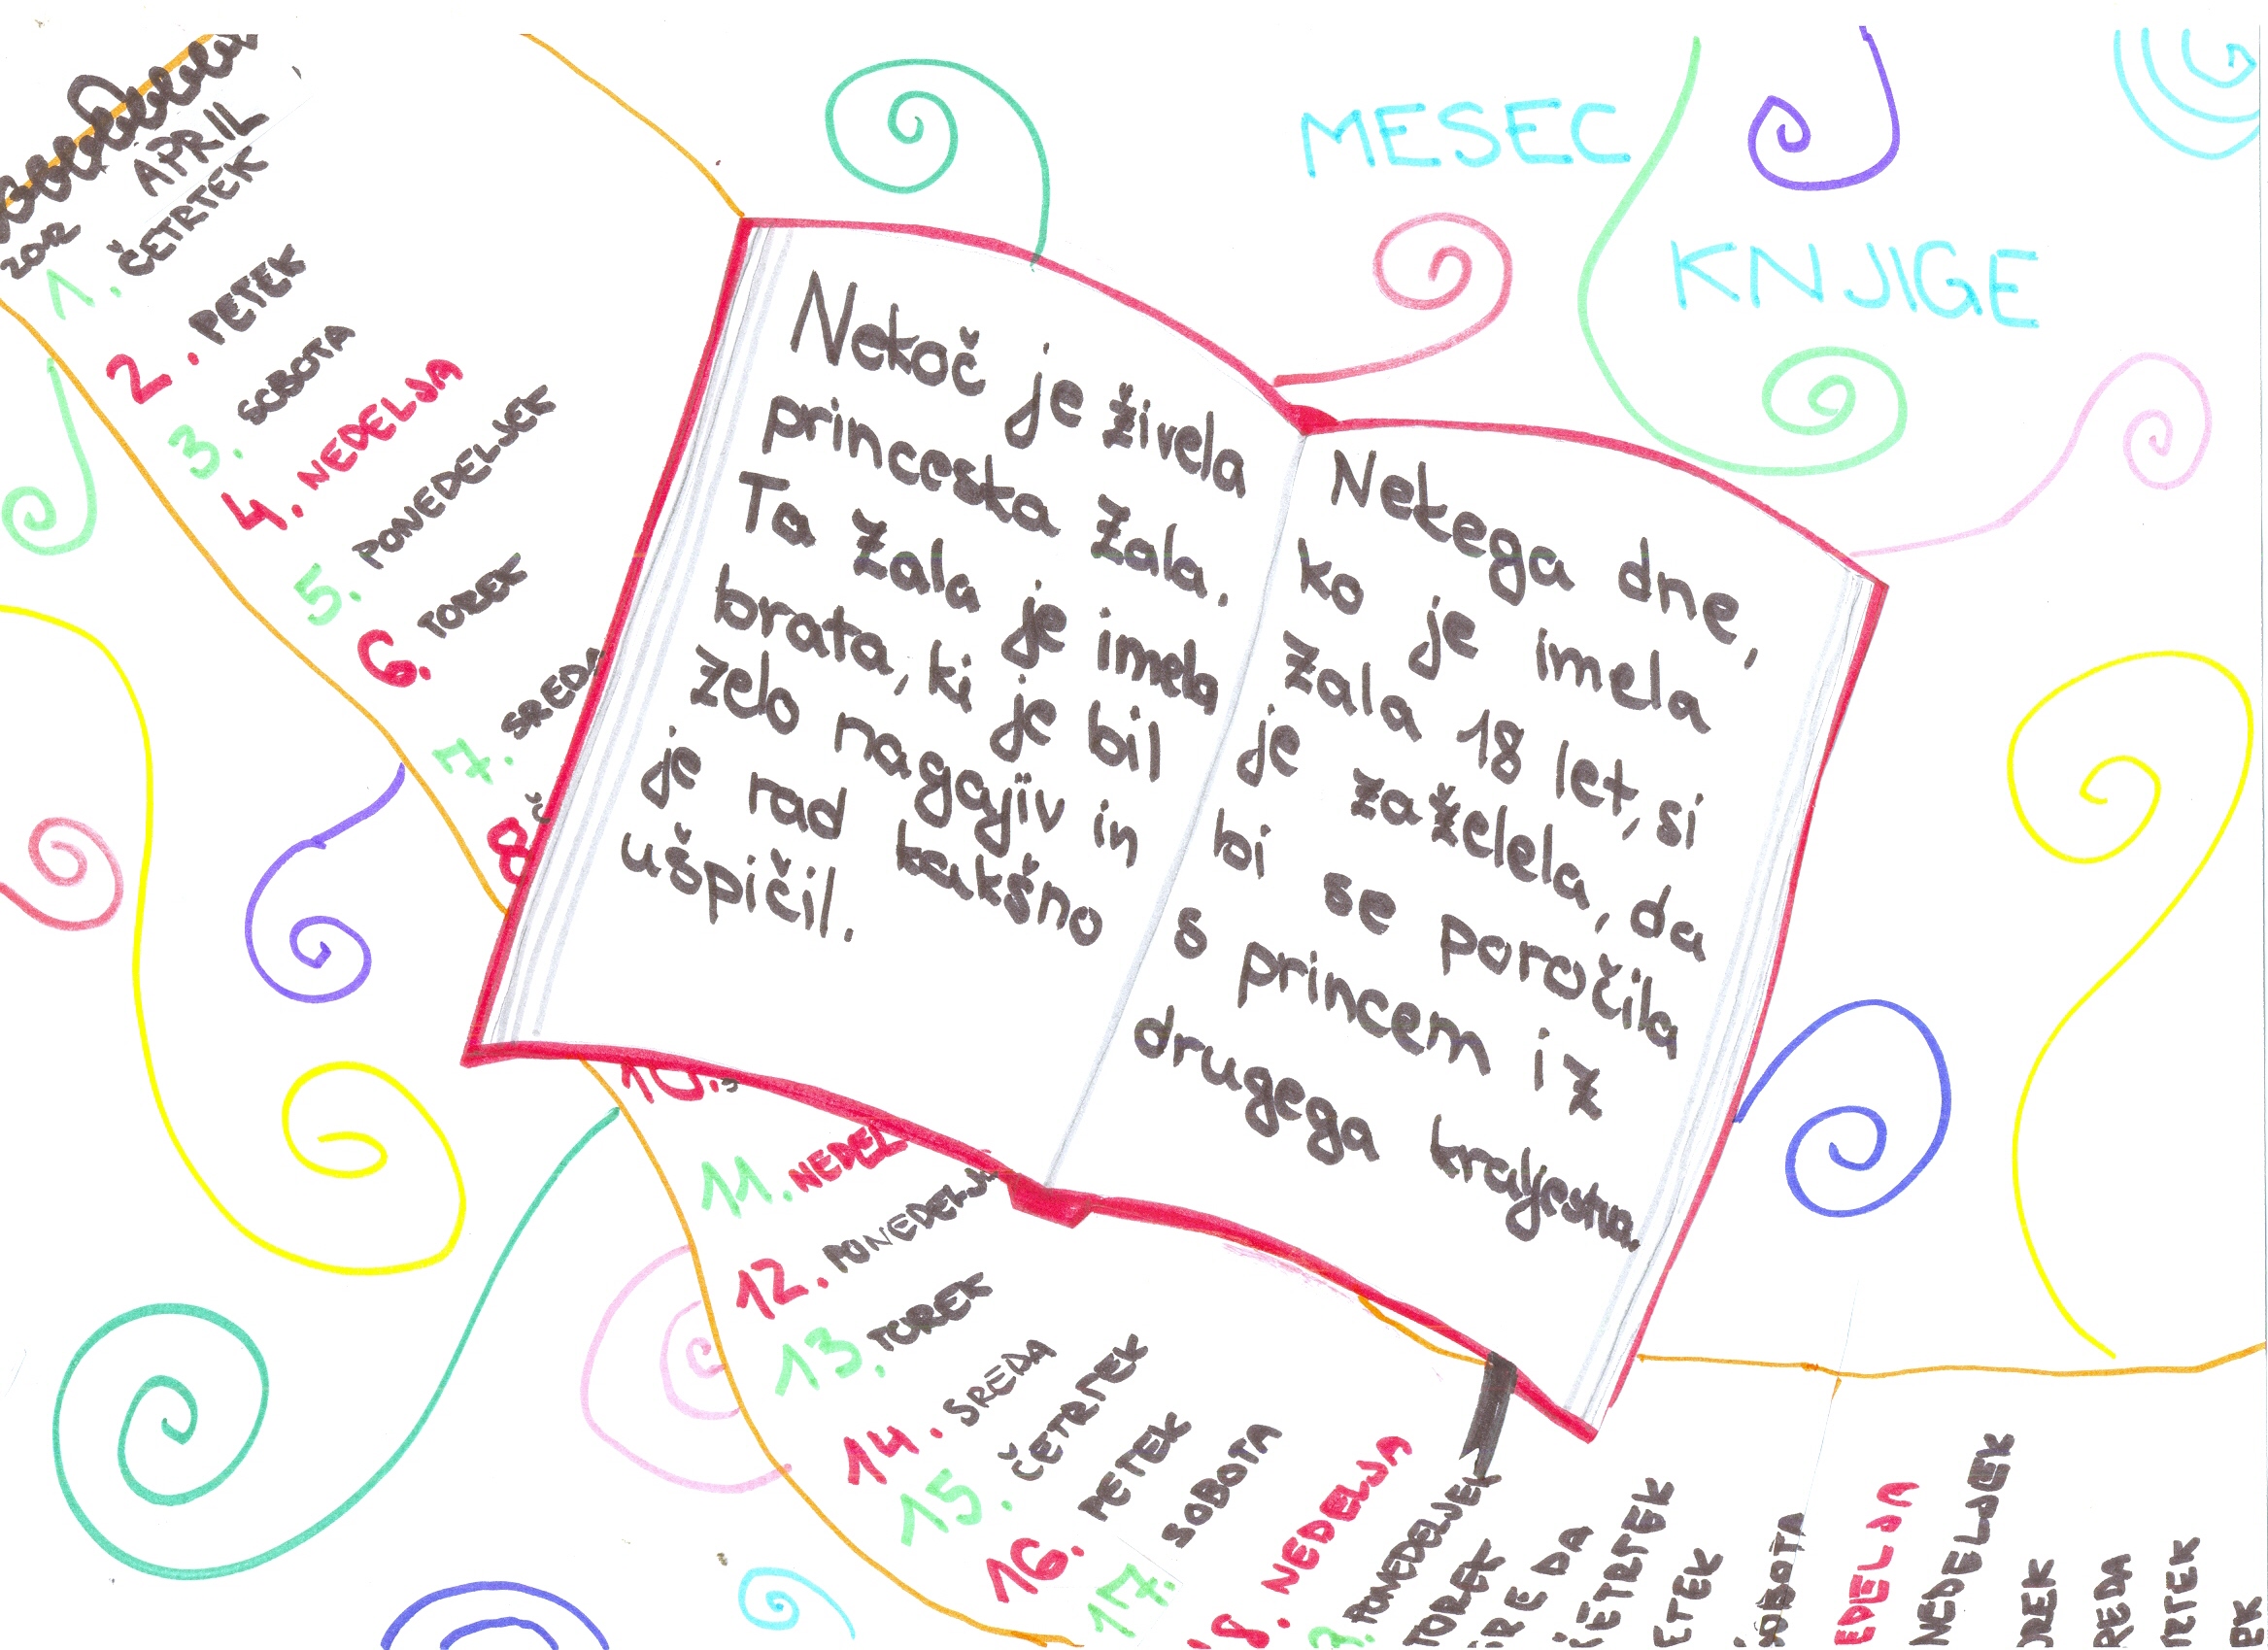 2012
APRIL
1. ČETRTEK
2. PETEK
3. SOBOTA
4. NEDELJA
5. PONEDELJEK
6. TOREK
7. SRED
8.
10.
11. NEDEL
12. PONEDELJ
13. TOREK
14. SREDA
15. ČETRTEK
16. PETEK
17. SOBOTA
8. NEDELJA
PONEDELJEK
TOREK
REDA
ČETRTEK
ETEK
SOBOTA
EDELJA
NEDELJEK
REK
REDA
RTEK
MESEC
KNJIGE
Nekoč je živela
princeska Zala.
Ta Zala je imela
brata, ki je bil
zelo nagajiv in
je rad kakšno
ušpičil.
Nekega dne,
ko je imela
Zala 18 let, si
je zaželela, da
bi se poročila
s princem iz
drugega kraljestva.